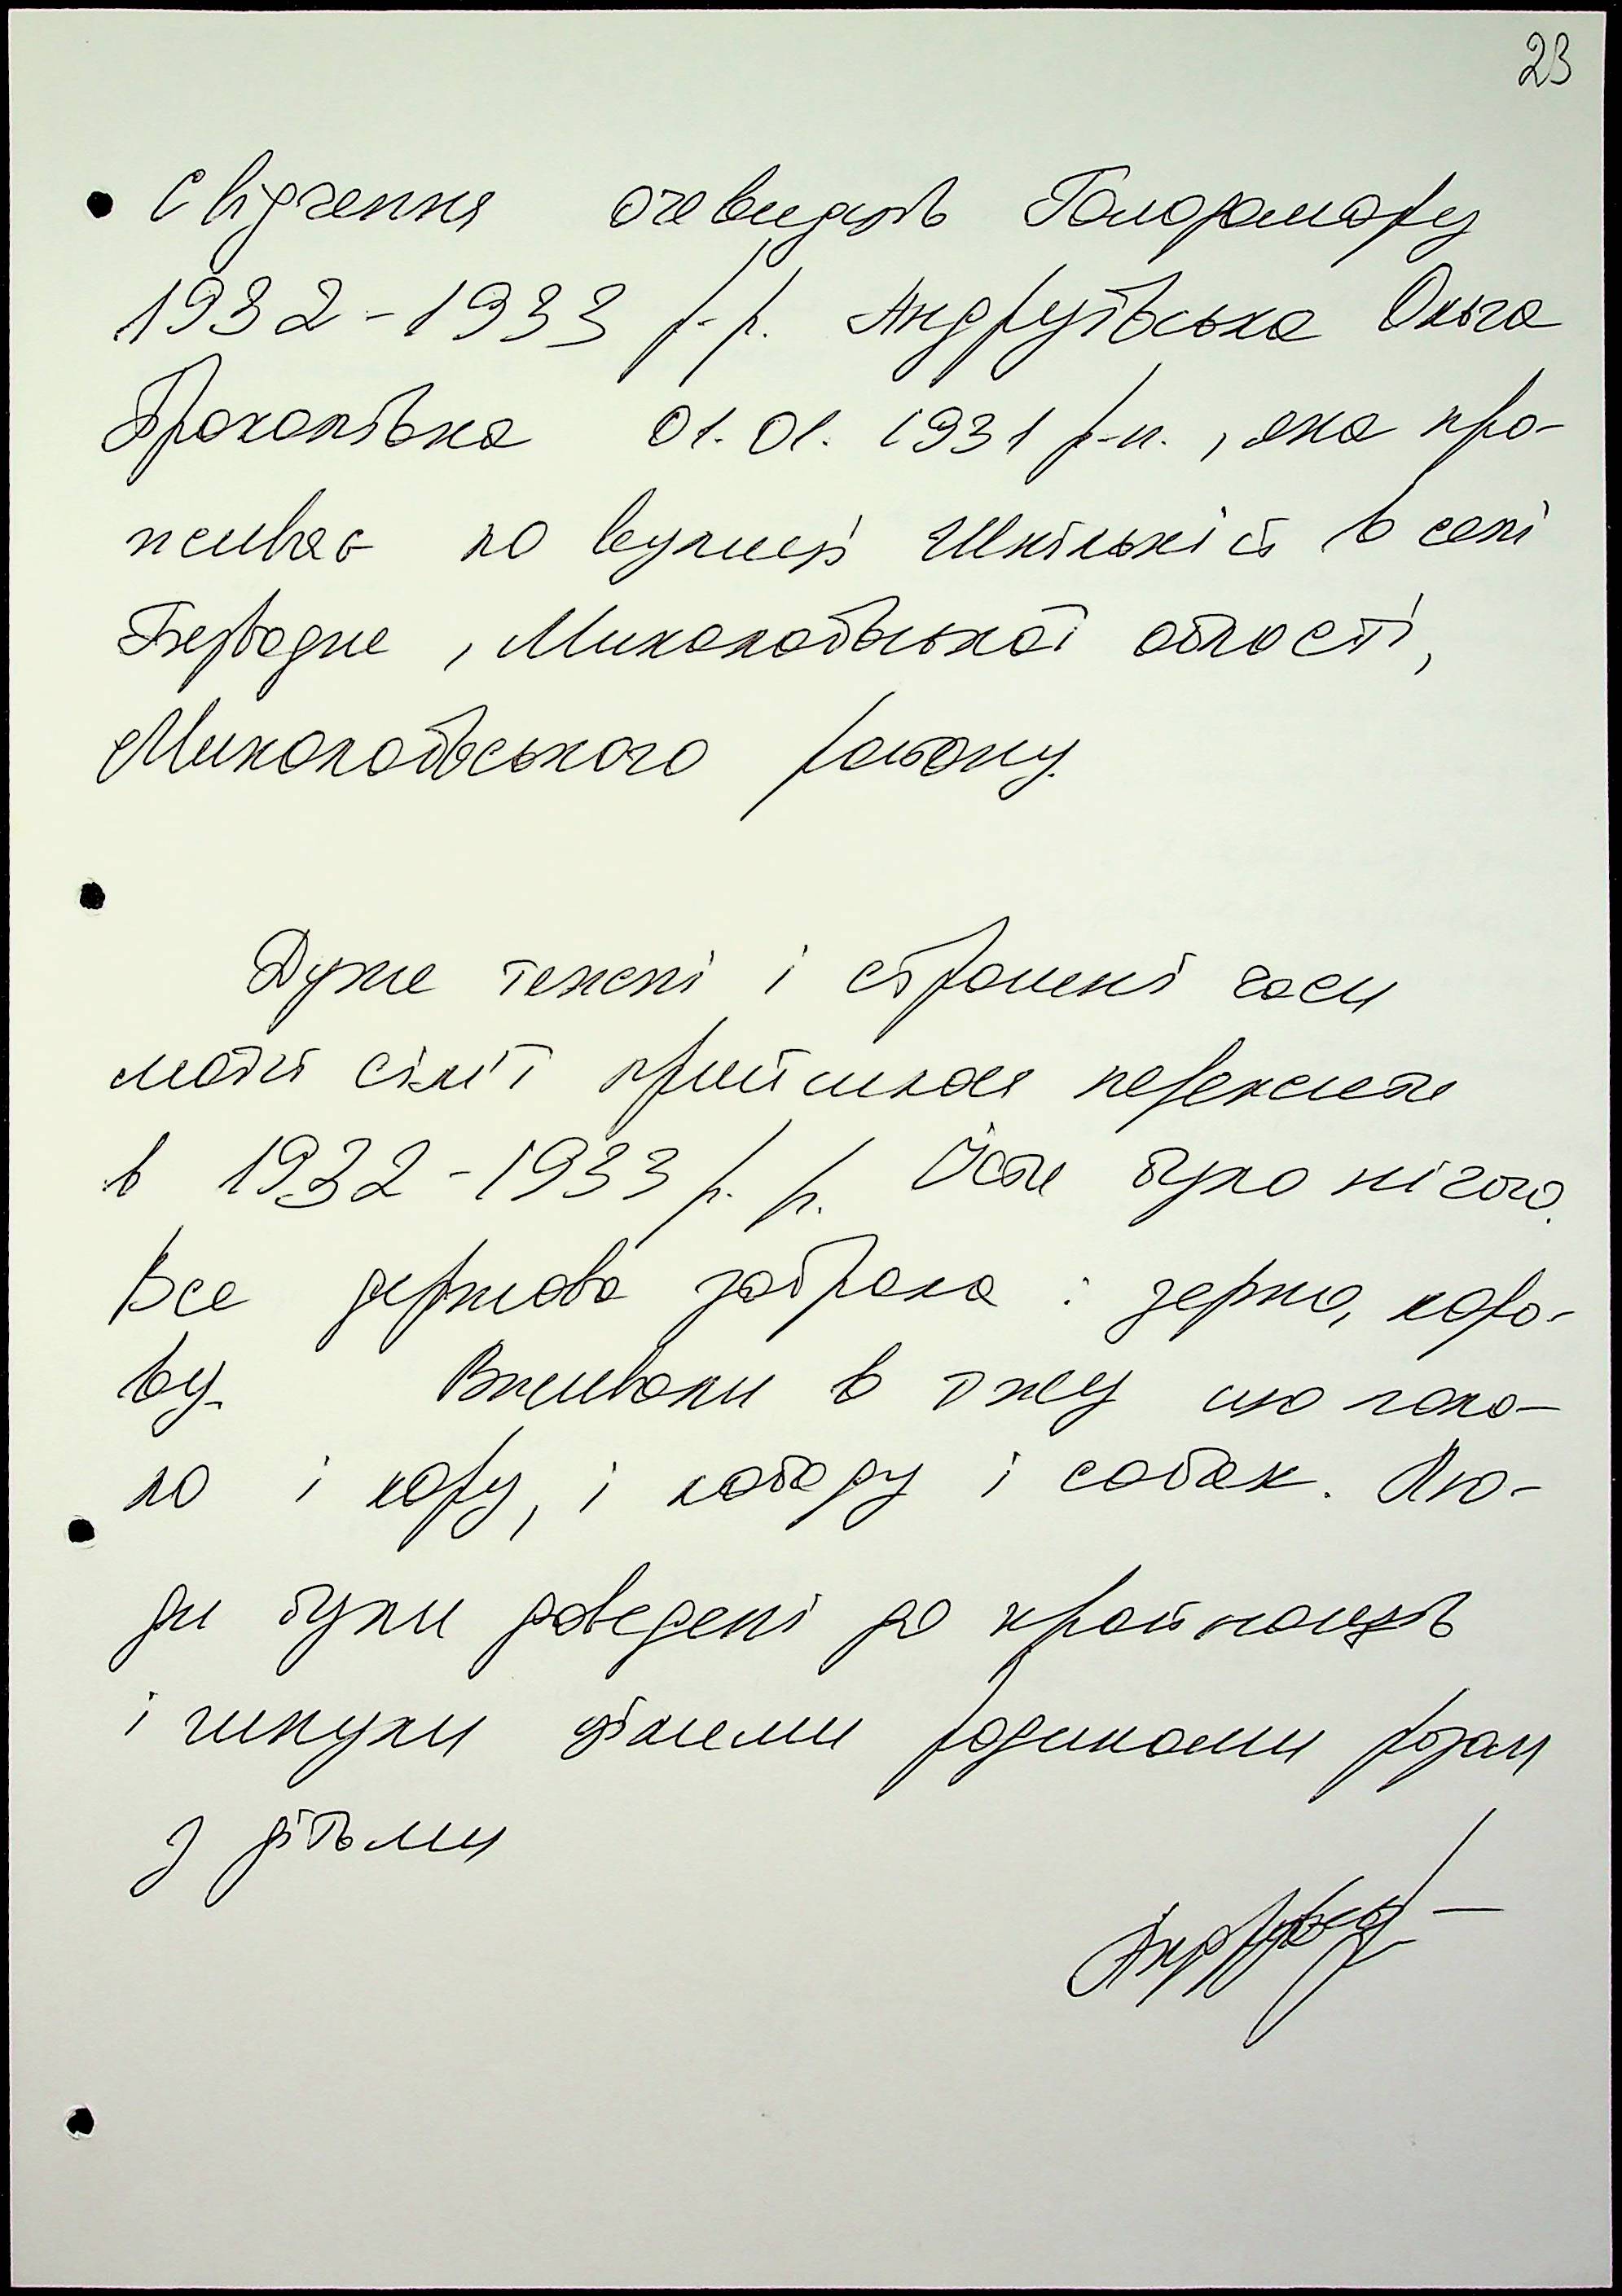 23
Свідчення очевидців Голодомору
1932-1933 р-р. Андруївська Ольга
Прокопівна 01.01.1931 р-н., яка про-
живає по вулиці Шкільній в селі
Безводне, Миколаївської області,
Миколаївського району.
Дуже тяжкі і страшні часи
моїй сім'ї прийшлося пережити
в 1932-1933 р. р. Їсти було нічого.
Все держава забрала: зерно, коро-
ву. Вживали в їжу що попа-
ло і кору, і лободу і собак. Лю-
ди були доведені до крайнощів
і гинули цілими родинами разом
з дітьми